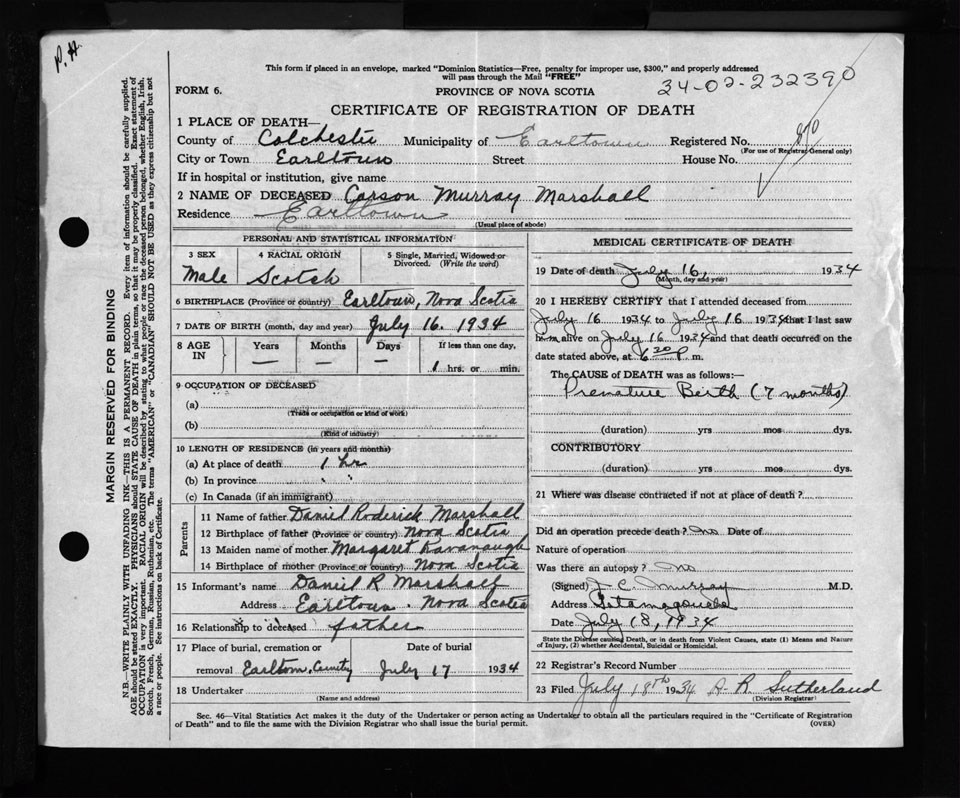 P.H.
This form if placed in an envelope, marked "Dominion Statistics—Free, penalty for improper use, $300," and properly addressed
will pass through the Mail "FREE"
FORM 6.
PROVINCE OF NOVA SCOTIA
34-02-232390
CERTIFICATE OF REGISTRATION OF DEATH
1 PLACE OF DEATH—
County of Colchester Municipality of Earltown Registered No.
(For use of Registrar General only)
City or Town Earltown Street House No.
If in hospital or institution, give name
2 NAME OF DECEASED Carson Murray Marshall
Residence Earltown
(Usual place of abode)
PERSONAL AND STATISTICAL INFORMATION
3 SEX 4 RACIAL ORIGIN 5 Single, Married, Widowed or Divorced. (Write the word)
Male Scotch
6 BIRTHPLACE (Province or country) Earltown, Nova Scotia
7 DATE OF BIRTH (month, day and year) July 16. 1934
8 AGE IN Years Months Days If less than one day,
— — — 1 hrs. or min.
9 OCCUPATION OF DECEASED
(a)
(Trade or occupation or kind of work)
(b)
(Kind of industry)
10 LENGTH OF RESIDENCE (in years and months)
(a) At place of death 1 hr
(b) In province " "
(c) In Canada (if an immigrant)
Parents
11 Name of father Daniel Roderick Marshall
12 Birthplace of father (Province or country) Nova Scotia
13 Maiden name of mother Margaret Kavanaugh
14 Birthplace of mother (Province or country) Nova Scotia
15 Informant's name Daniel R Marshall
Address Earltown. Nova Scotia
16 Relationship to deceased father
17 Place of burial, cremation or Date of burial
removal Earltown, July 17 1934
18 Undertaker
(Name and address)
MEDICAL CERTIFICATE OF DEATH
19 Date of death July 16, 1934
(Month, day and year)
20 I HEREBY CERTIFY that I attended deceased from
July 16 1934 to July 16 1934 that I last saw
him alive on July 16 1934 and that death occurred on the
date stated above, at 6 20 P. m.
The CAUSE of DEATH was as follows:—
Premature Birth (7 months)
(duration) yrs mos dys.
CONTRIBUTORY
(duration) yrs mos dys.
21 Where was disease contracted if not at place of death?
Did an operation precede death? no Date of
Nature of operation
Was there an autopsy? No
(Signed) J. C. Murray M.D.
Address Tatamagouche
Date July 18, 1934
State the Disease causing Death, or in death from Violent Causes, state (1) Means and Nature
of Injury, (2) whether Accidental, Suicidal or Homicidal.
22 Registrar's Record Number
23 Filed July 18th 1934 A. R. Sutherland
(Division Registrar)
Sec. 46—Vital Statistics Act makes it the duty of the Undertaker or person acting as Undertaker to obtain all the particulars required in the "Certificate of Registration
of Death" and to file the same with the Division Registrar who shall issue the burial permit. (OVER)
MARGIN RESERVED FOR BINDING
N.B.—WRITE PLAINLY WITH UNFADING INK—THIS IS A PERMANENT RECORD. Every item of information should be carefully supplied.
AGE should be stated EXACTLY. PHYSICIANS should STATE CAUSE OF DEATH in plain terms, so that it may be properly classified. Exact statement of
OCCUPATION is very important. RACIAL ORIGIN will be described by stating to what people or race the deceased person belonged, whether English, Irish,
Scotch, French, German, Russian, Ruthenian, etc. The terms "AMERICAN" or "CANADIAN" SHOULD NOT BE USED as they express citizenship but not
a race or people. See instructions on back of Certificate.